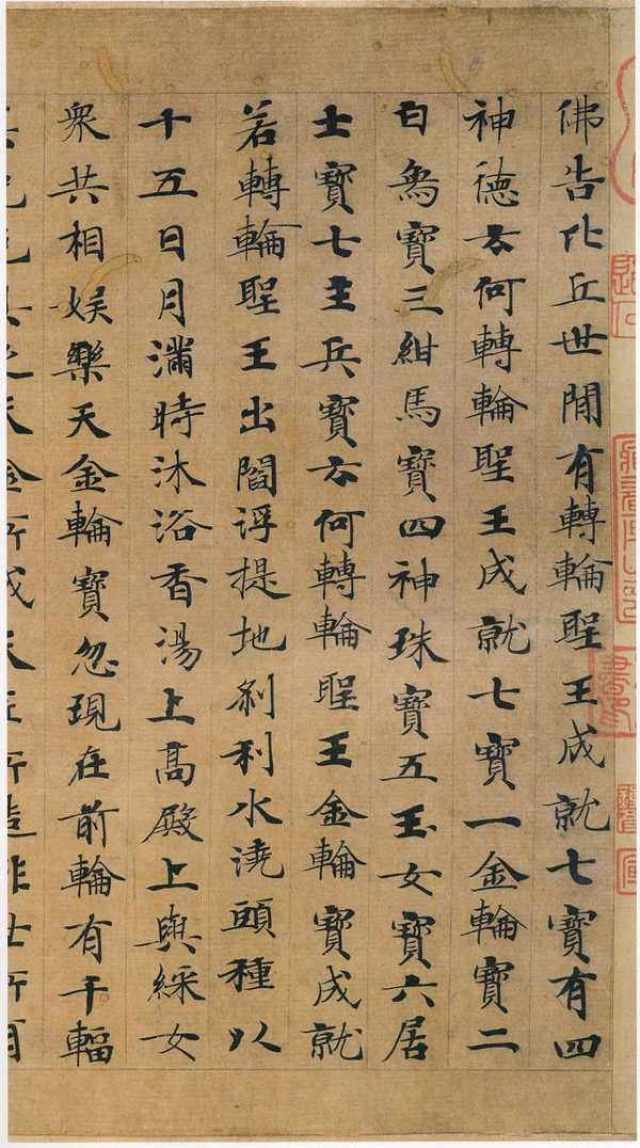 佛告比丘世閒有轉輪聖王成就七寶有四
神德云何轉輪聖王成就七寶一金輪寶二
白象寶三紺馬寶四神珠寶五玉女寶六居
士寶七主兵寶云何轉輪聖王金輪寶成就
若轉輪聖王出閻浮提地刹利水澆頭種以
十五日月滿時沐浴香湯上高殿上與綵女
眾共相娛樂天金輪寶忽現在前輪有千輻
光色具足天金所成天匠所造非世所有